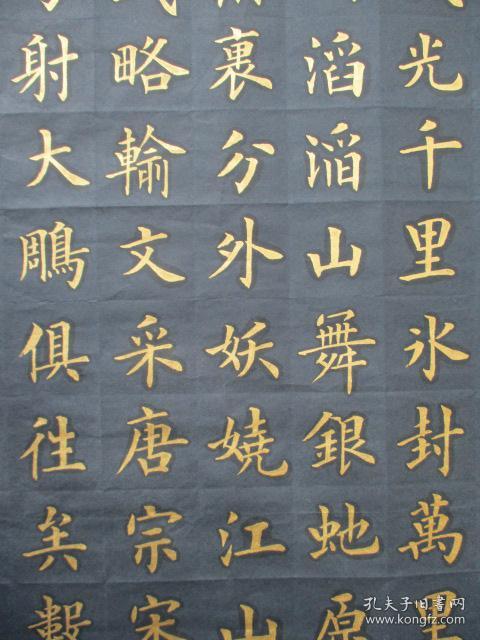 光千里氷封萬里
滔滔山舞銀虵原
裏分外妖嬈江山
略輸文采唐宗宋
射大鵰俱徃矣數
孔夫子旧书网
kongfz.com